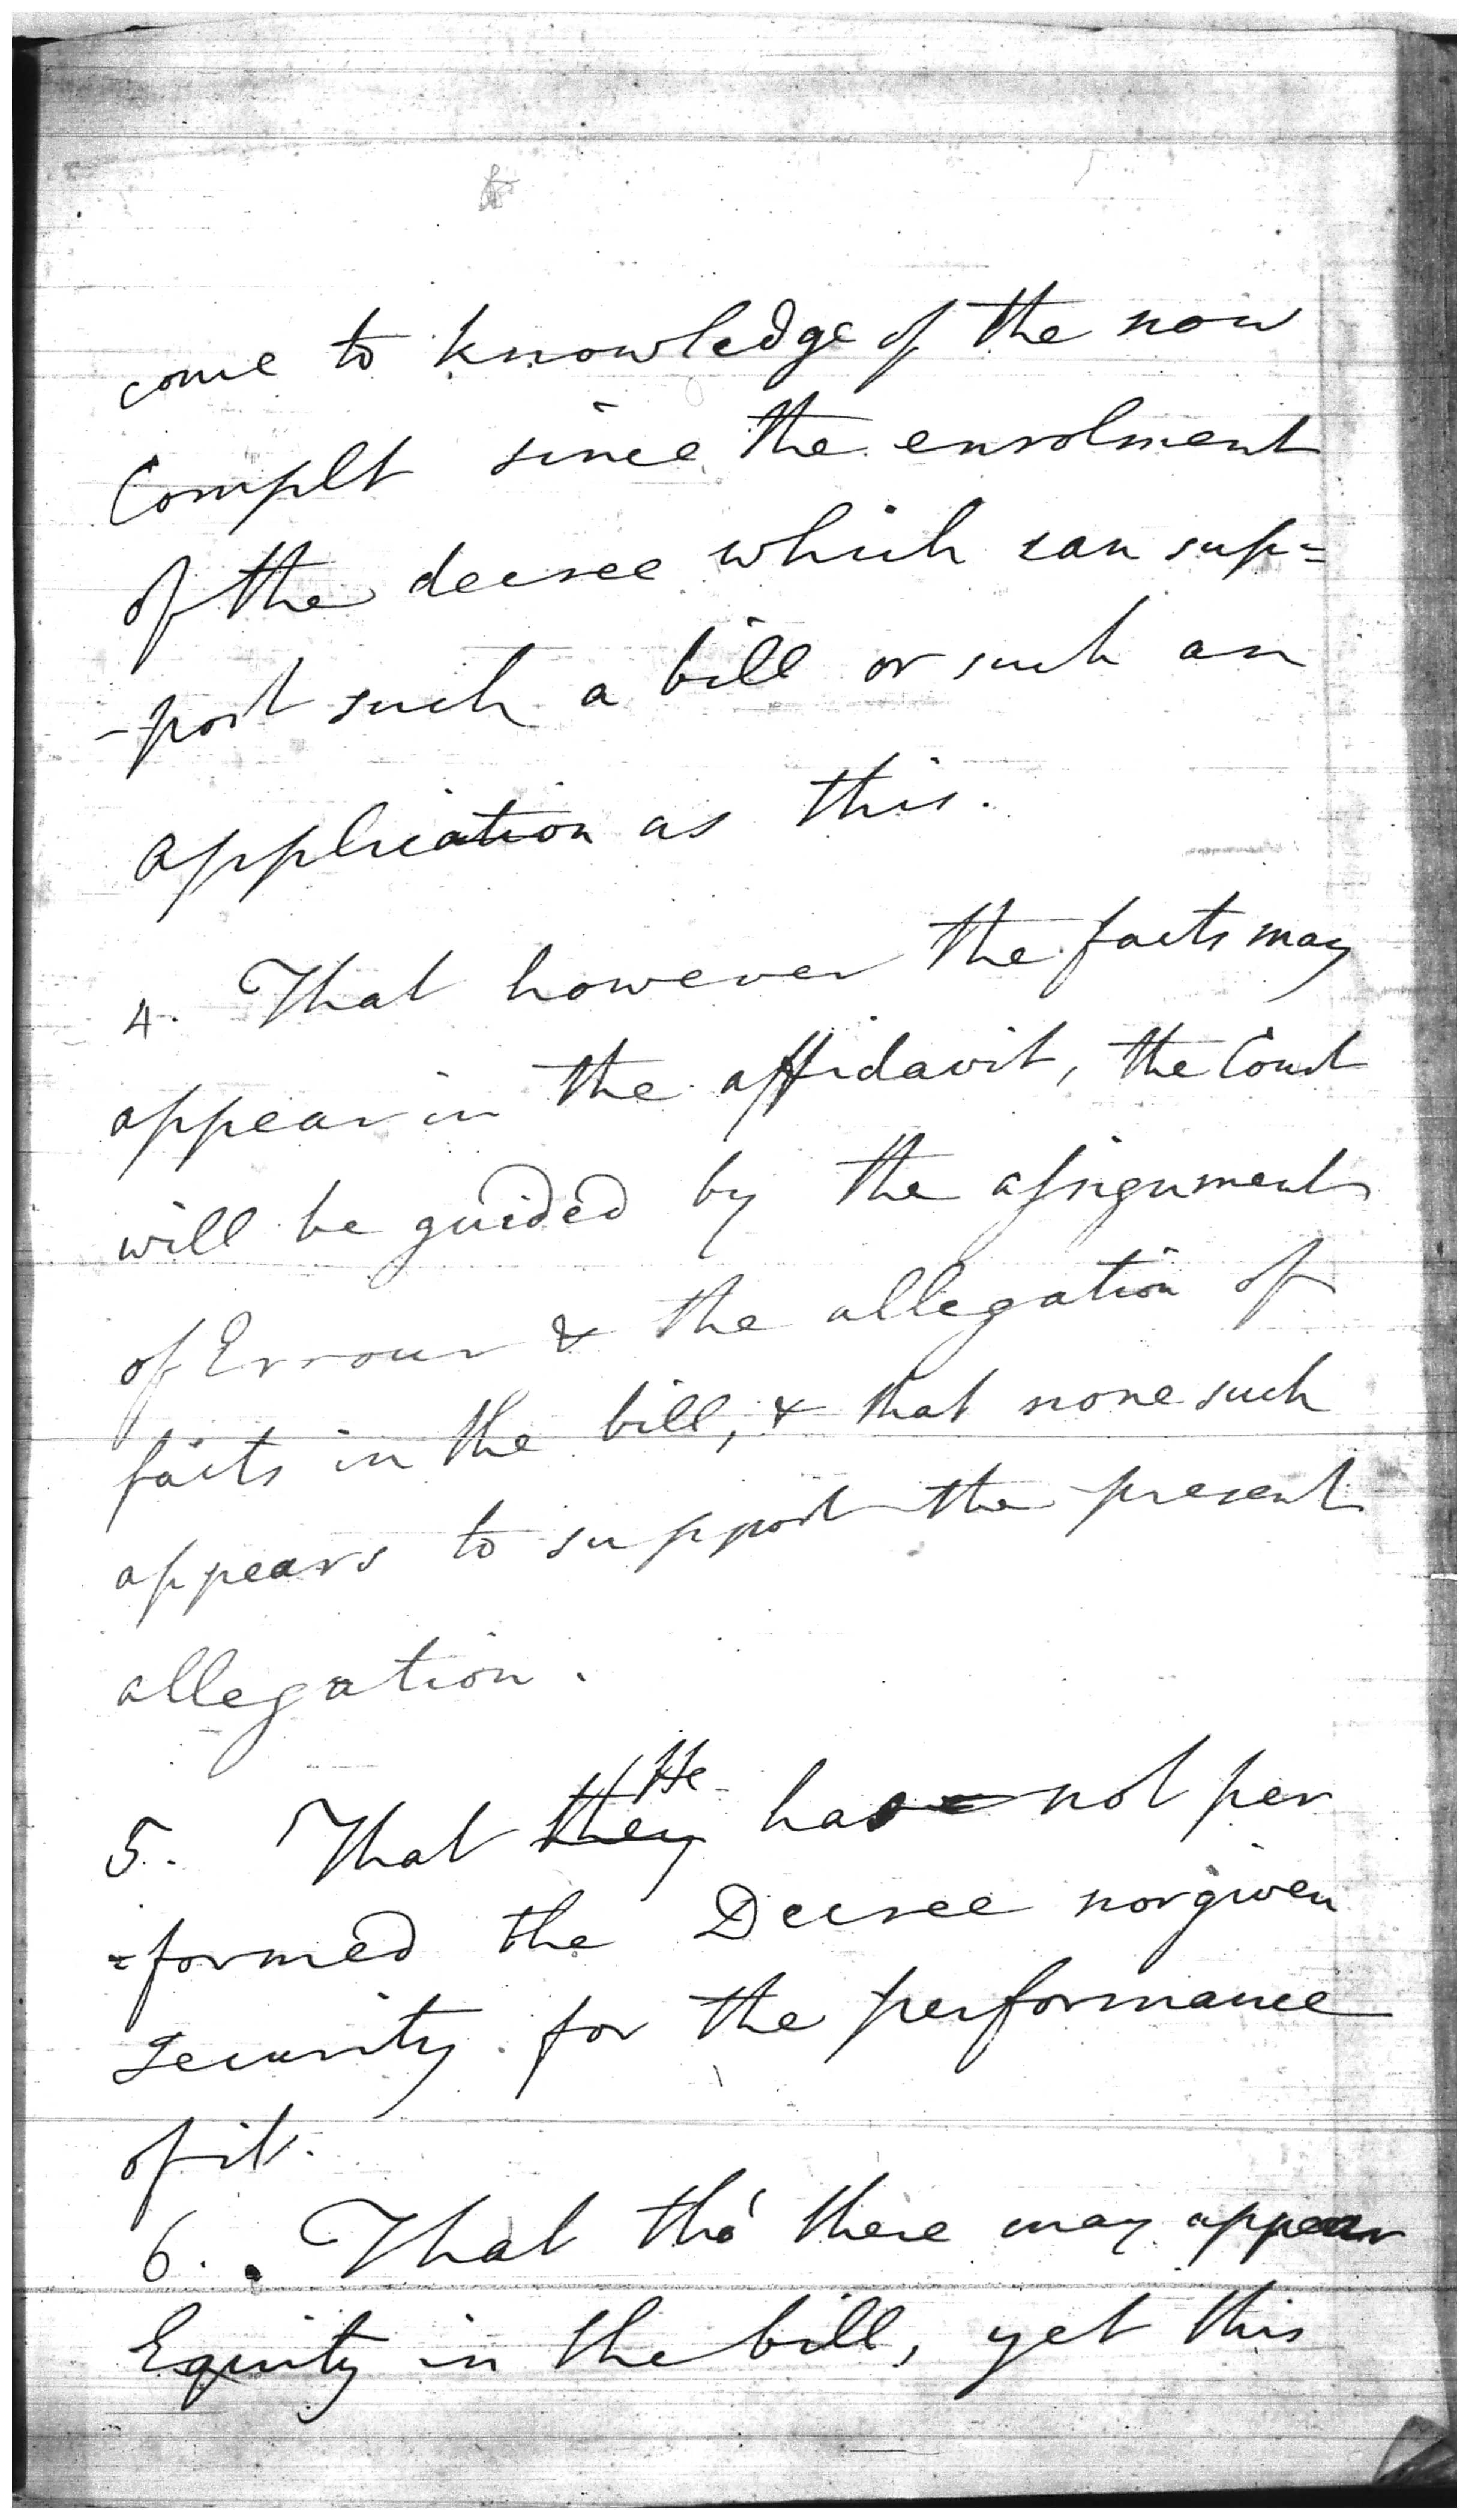 come to knowledge of the now
Complt since the enrolment
of the decree which can sup=
-port such a bill or such an
application as this.
4. That however the facts may
appear in the affidavit, the Court
will be guided by the assignment
of Errour & the allegation of
facts in the bill, & that none such
appears to support the present
allegation.
5. That they He has not per
=formed the Decree nor given
Security for the performance
of it.
6. That tho' there may appear
Equity in the bill, yet this